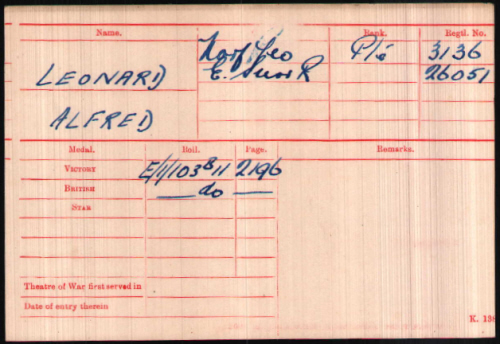 Name. Rank. Regtl. No.
Norf Yeo Pte 3136
LEONARD E. Surr R 26051
ALFRED
Medal. Roll. Page. Remarks.
VICTORY E/1/103 B 11 2196
BRITISH — do —
STAR
Theatre of War first served in
Date of entry therein
K. 13